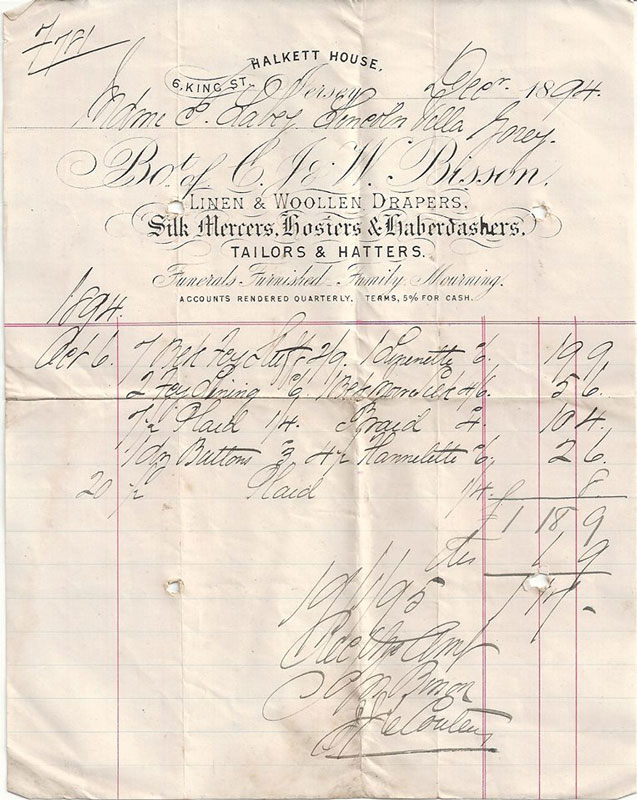 7/781
HALKETT HOUSE,
6, KING ST. Jersey Decr. 1894.
Lincoln Villa Gorey.
Bot. of C. J. & W. Bisson.
LINEN & WOOLLEN DRAPERS,
Silk Mercers, Hosiers & Haberdashers,
TAILORS & HATTERS.
Funerals Furnished. Family Mourning.
ACCOUNTS RENDERED QUARTERLY. TERMS, 5% FOR CASH.
1894.
Oct 6. 7 Blk Fcy Stuff 2/9 1 6 19 9
2 Fcy Lining 4/6 5 6
7½ Plaid 1/4 Braid 4 10 4
1 dz Buttons 3 4½ Flannelette 6 2 6
20 ½ Plaid 1/4 8
£1 18 9
1 9
19/1/95 1 17 -